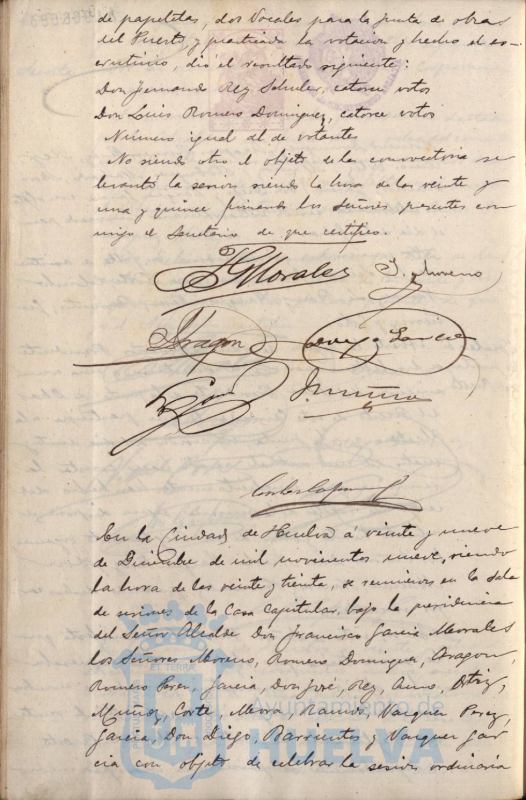 de papeletas, dos Vocales para la junta de obras
del Puerto y practicada la votacion y hecho el es-
crutinio, dió el resultado siguiente:
Don Fernando Rey Schuler, catorce votos
Don Luis Romero Dominguez, catorce votos
Número igual al de votantes
No siendo otro el objeto de la convocatoria se
levantó la sesion siendo la hora de las veinte y
una y quince firmando los Señores presentes con
migo el Secretario de que certifico.
F G Morales
J. Moreno
Aragon
Garcia
Muñoz
En la Ciudad de Huelva á veinte y nueve
de Diciembre de mil novecientos nueve, siendo
la hora de las veinte y treinta, se reunieron en la sala
de sesiones de la Casa Capitular bajo la presidencia
del Señor Alcalde Don Francisco Garcia Morales
los Señores Moreno, Romero Dominguez, Aragon,
Romero Perez, Garcia, Don José, Rey, Ortiz,
Muñoz, Corte, Mora, Ramos, Vazquez Perez,
Garcia, Don Diego, Barrientos y Vazquez Gar
cia con objeto de celebrar la sesion ordinaria
Ayuntamiento de
HUELVA